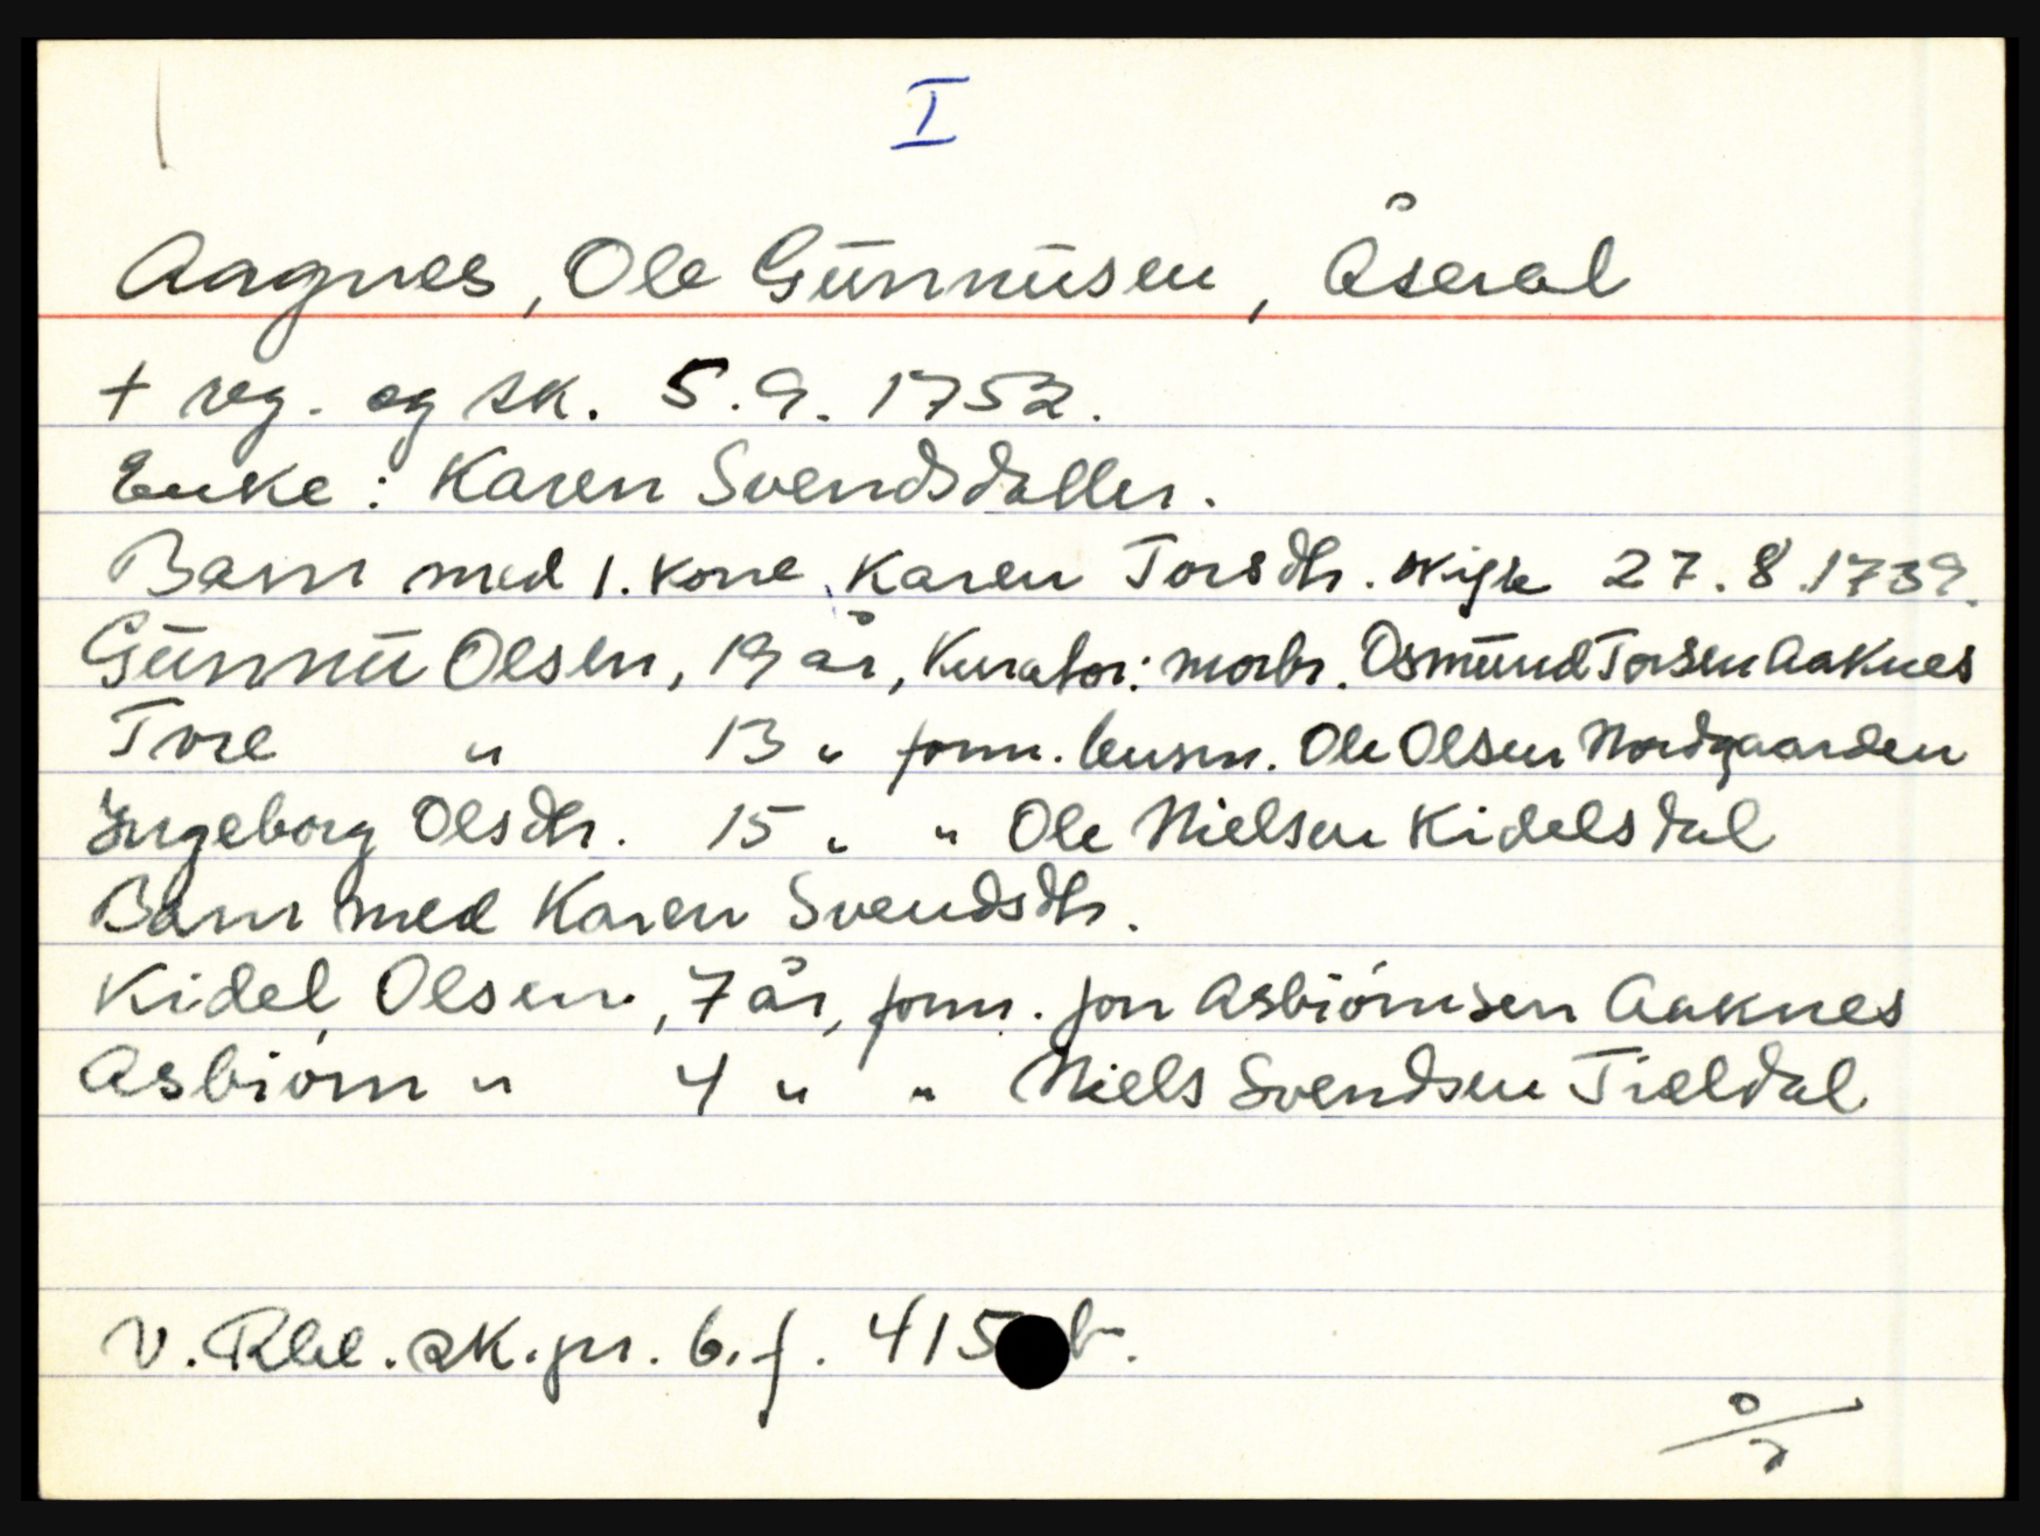 I
Aagnes, Ole Gunnusen, Åseral
+ reg. og sk. 5.9.1752.
Enke: Karen Svendsdatter.
Barn med 1. kone, Karen Torsdtr. skifte 27.8.1739.
Gunnu Olsen, 19 år, Kurator: morbr. Osmund Torsen Aaknes
Tore " 13 " form. lensm. Ole Olsen Nordgaarden
Ingeborg Olsdtr. 15 " " Ole Nielsen Kidelsdal
Barn med Karen Svendsdtr.
Kidel Olsen, 7 år, form. Jon Asbiörnsen Aaknes
Asbiörn " 4 " " Niels Svendsen Tieldal
V. Rbl. sk. pr. 6. f. 415 b.